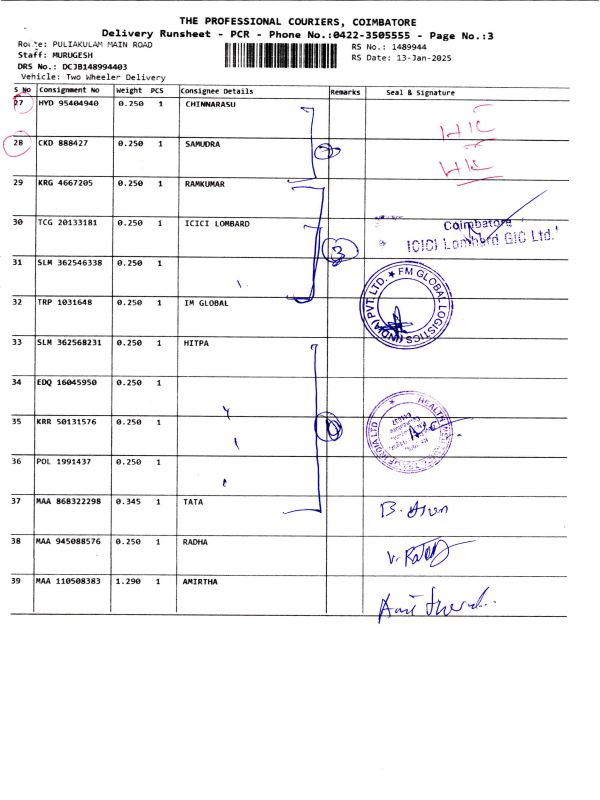 THE PROFESSIONAL COURIERS, COIMBATORE
Delivery Runsheet - PCR - Phone No.:0422-3505555 - Page No.:3
Route: PULIAKULAM MAIN ROAD
RS No.: 1489944
Staff: MURUGESH
RS Date: 13-Jan-2025
DRS No.: DCJB148994403
Vehicle: Two Wheeler Delivery
S No Consignment No Weight PCS Consignee Details Remarks Seal & Signature
27 HYD 95404940 0.250 1 CHINNARASU
28 CKD 888427 0.250 1 SAMUDRA
29 KRG 4667205 0.250 1 RAMKUMAR
30 TCG 20133181 0.250 1 ICICI LOMBARD
Coimbatore
ICICI Lombard GIC Ltd.
3
31 SLM 362546338 0.250 1
32 TRP 1031648 0.250 1 IM GLOBAL
FM GLOBAL LOGISTICS (INDIA) PVT. LTD. ★
33 SLM 362568231 0.250 1 HITPA
34 EDQ 16045950 0.250 1
35 KRR 50131576 0.250 1
36 POL 1991437 0.250 1
37 MAA 868322298 0.345 1 TATA
38 MAA 945088576 0.250 1 RADHA
39 MAA 110508383 1.290 1 AMIRTHA